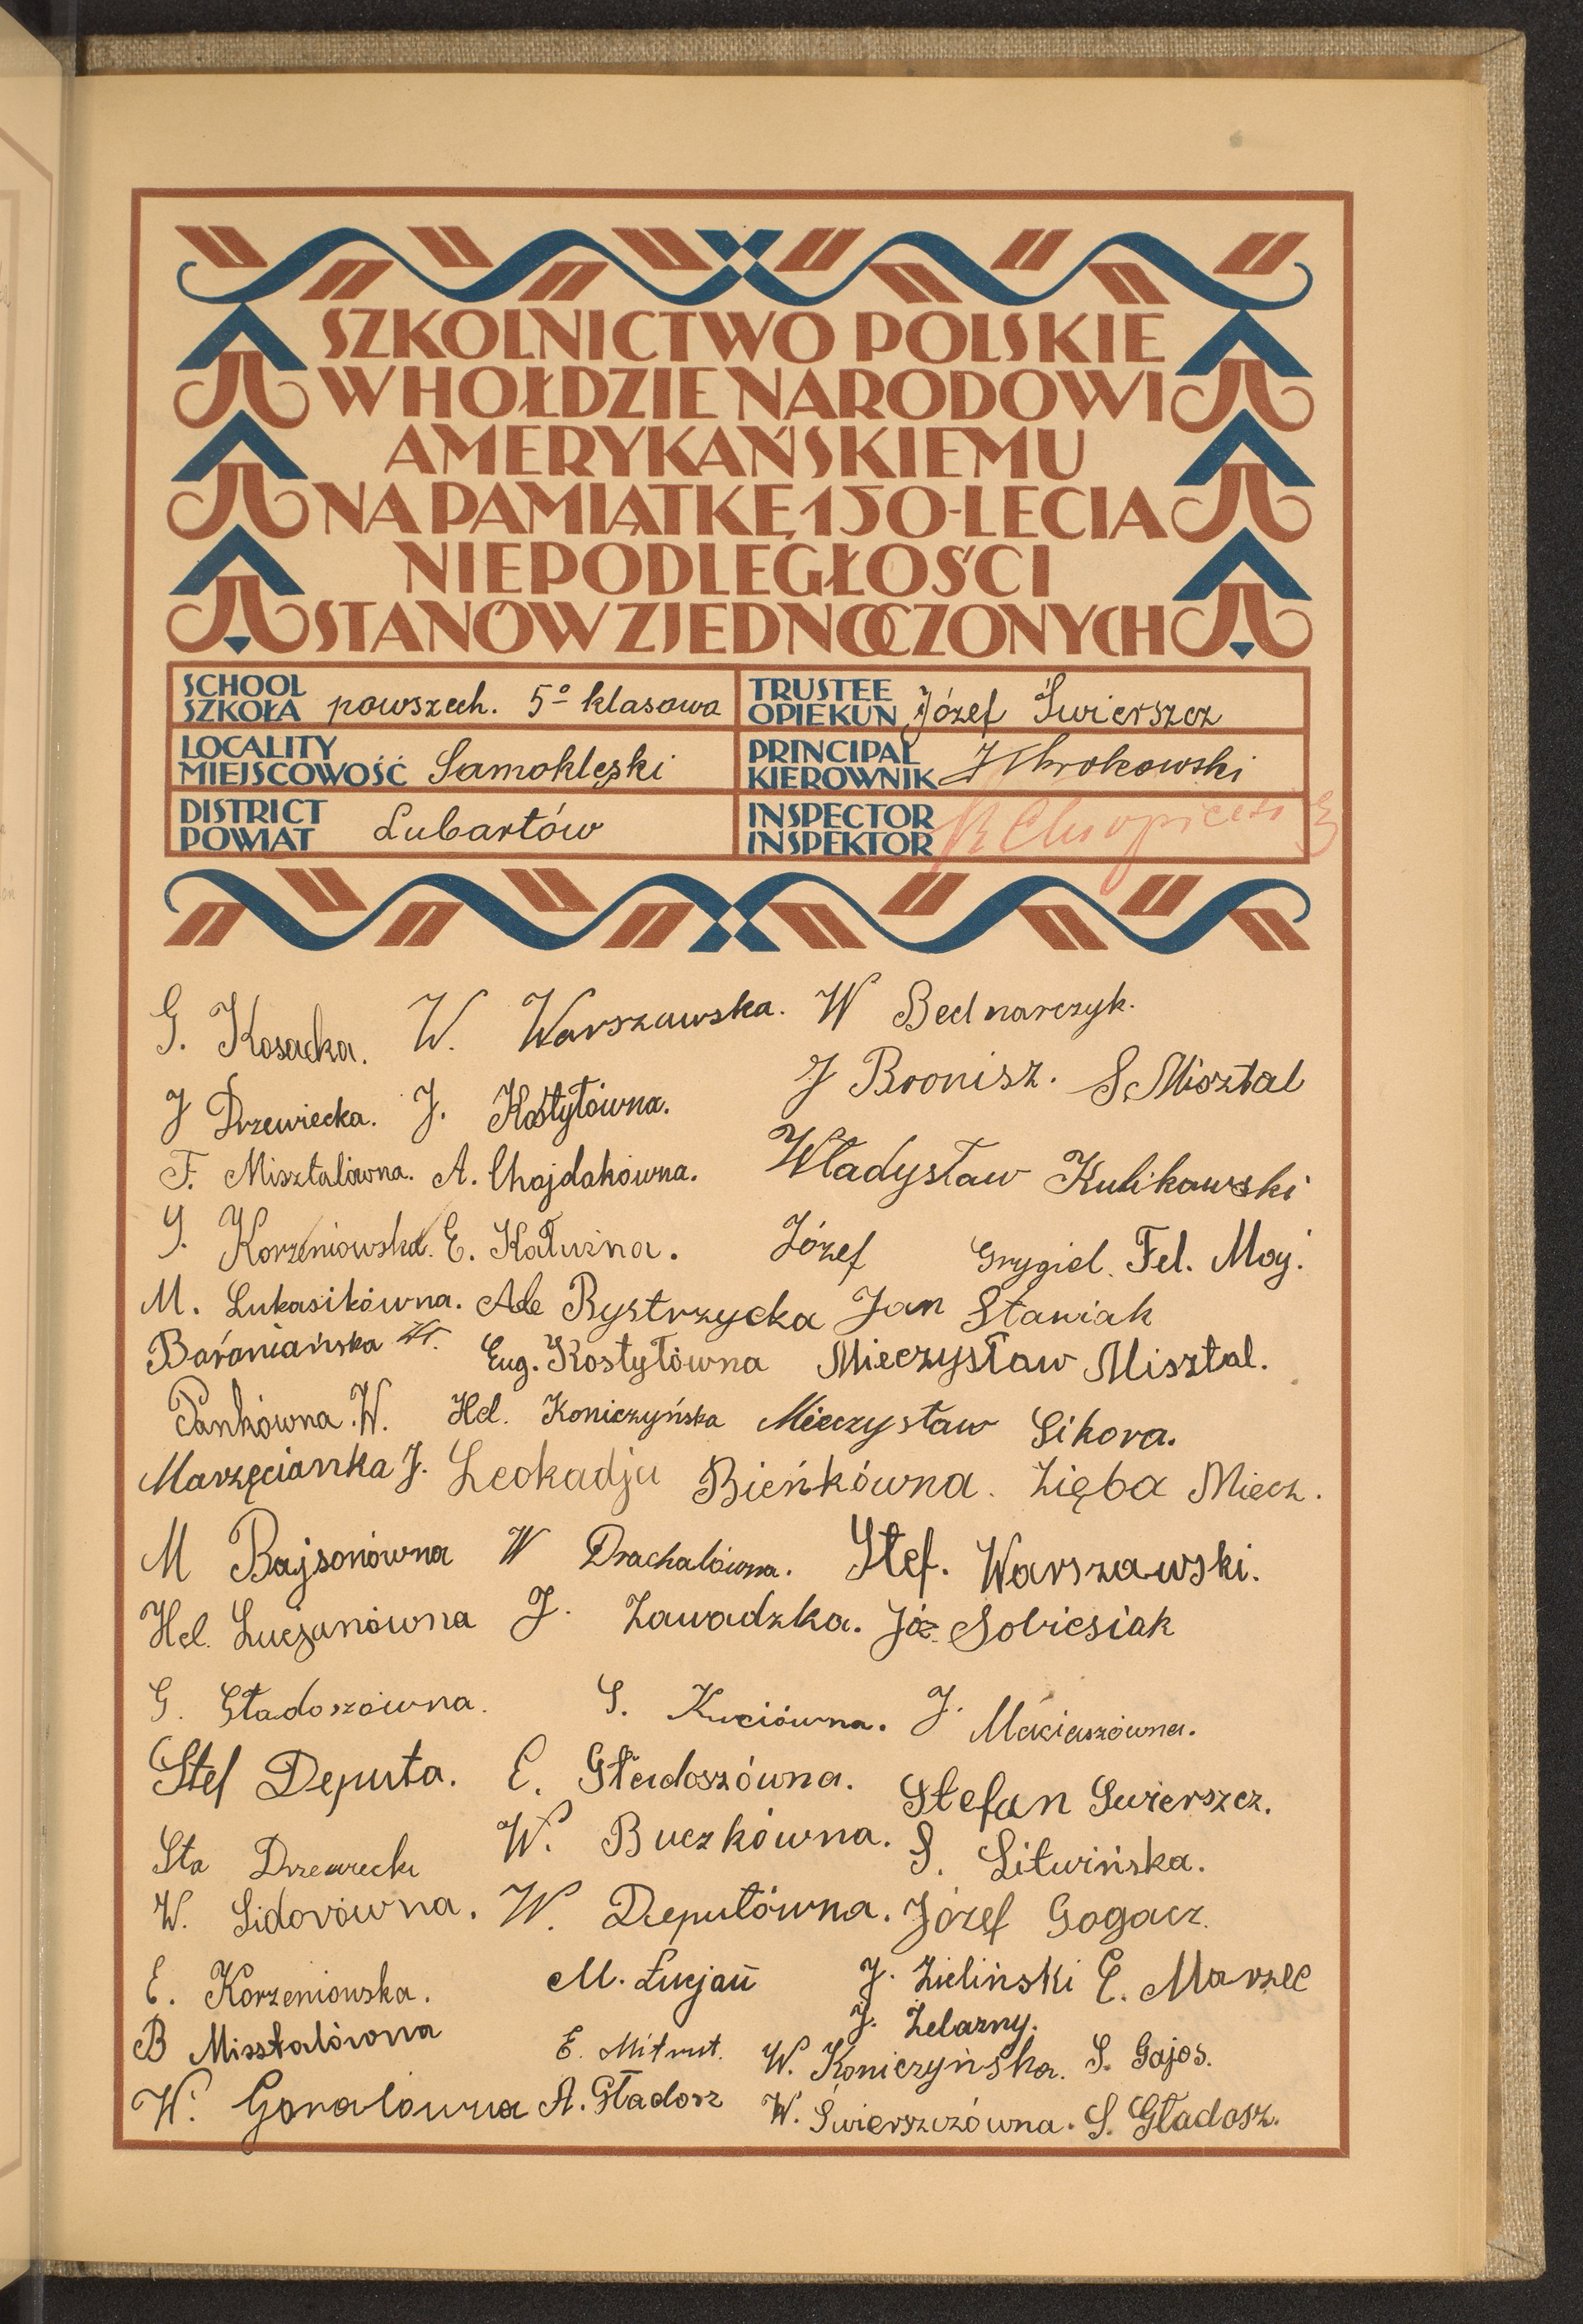 SZKOLNICTWO POLSKIE
W HOŁDZIE NARODOWI
AMERYKAŃSKIEMU
NA PAMIĄTKĘ 150-LECIA
NIEPODLEGŁOŚCI
STANÓW ZJEDNOCZONYCH
SCHOOL SZKOŁA powszech. 5º klasowa
TRUSTEE OPIEKUN Józef Świerszcz
LOCALITY MIEJSCOWOŚĆ Samoklęski
PRINCIPAL KIEROWNIK
DISTRICT POWIAT Lubartów
INSPECTOR INSPEKTOR
G. Kosacka. W. Warszawska. W Bednarczyk.
J Drzewiecka. J. Kostyłówna. J Bronisz. S. Misztal
F. Misztalówna. A. Chojdakówna. Władysław Kulikowski
S. Korzeniowska. E. Kałużna. Józef Grygiel. Fel. Moj.
M. Łukasikówna. Ale Bystrzycka Jan Staniak
Baraniańska Wł. Eug. Kostyłówna Mieczysław Misztal.
Pankówna W. Hel. Koniczyńska Mieczysław Sikora.
Marzęcianka J. Leokadja Bieńkówna. Zięba Miecz.
M Bajsonówna W Drachalówna. Stef. Warszawski.
Hel. Lucjanówna J. Zawadzka. Józ. Sobiesiak
G. Gładoszówna. S. Kuciówna. J. Maciaszówna.
Stef Deputa. E. Gładoszówna. Stefan Swierszcz.
Sta Drzewiecki W. Buczkówna. S. Litwińska.
W. Sidorówna. W. Deputówna. Józef Gogacz.
E. Korzeniowska. M. Łucjan J. Zieliński E. Marzec
J. Żelazny.
B Misztalówna E. Mitrut. W. Koniczyńska. S. Gajos.
W. Goralówna A. Gładosz W. Świerszczówna. S. Gładosz.